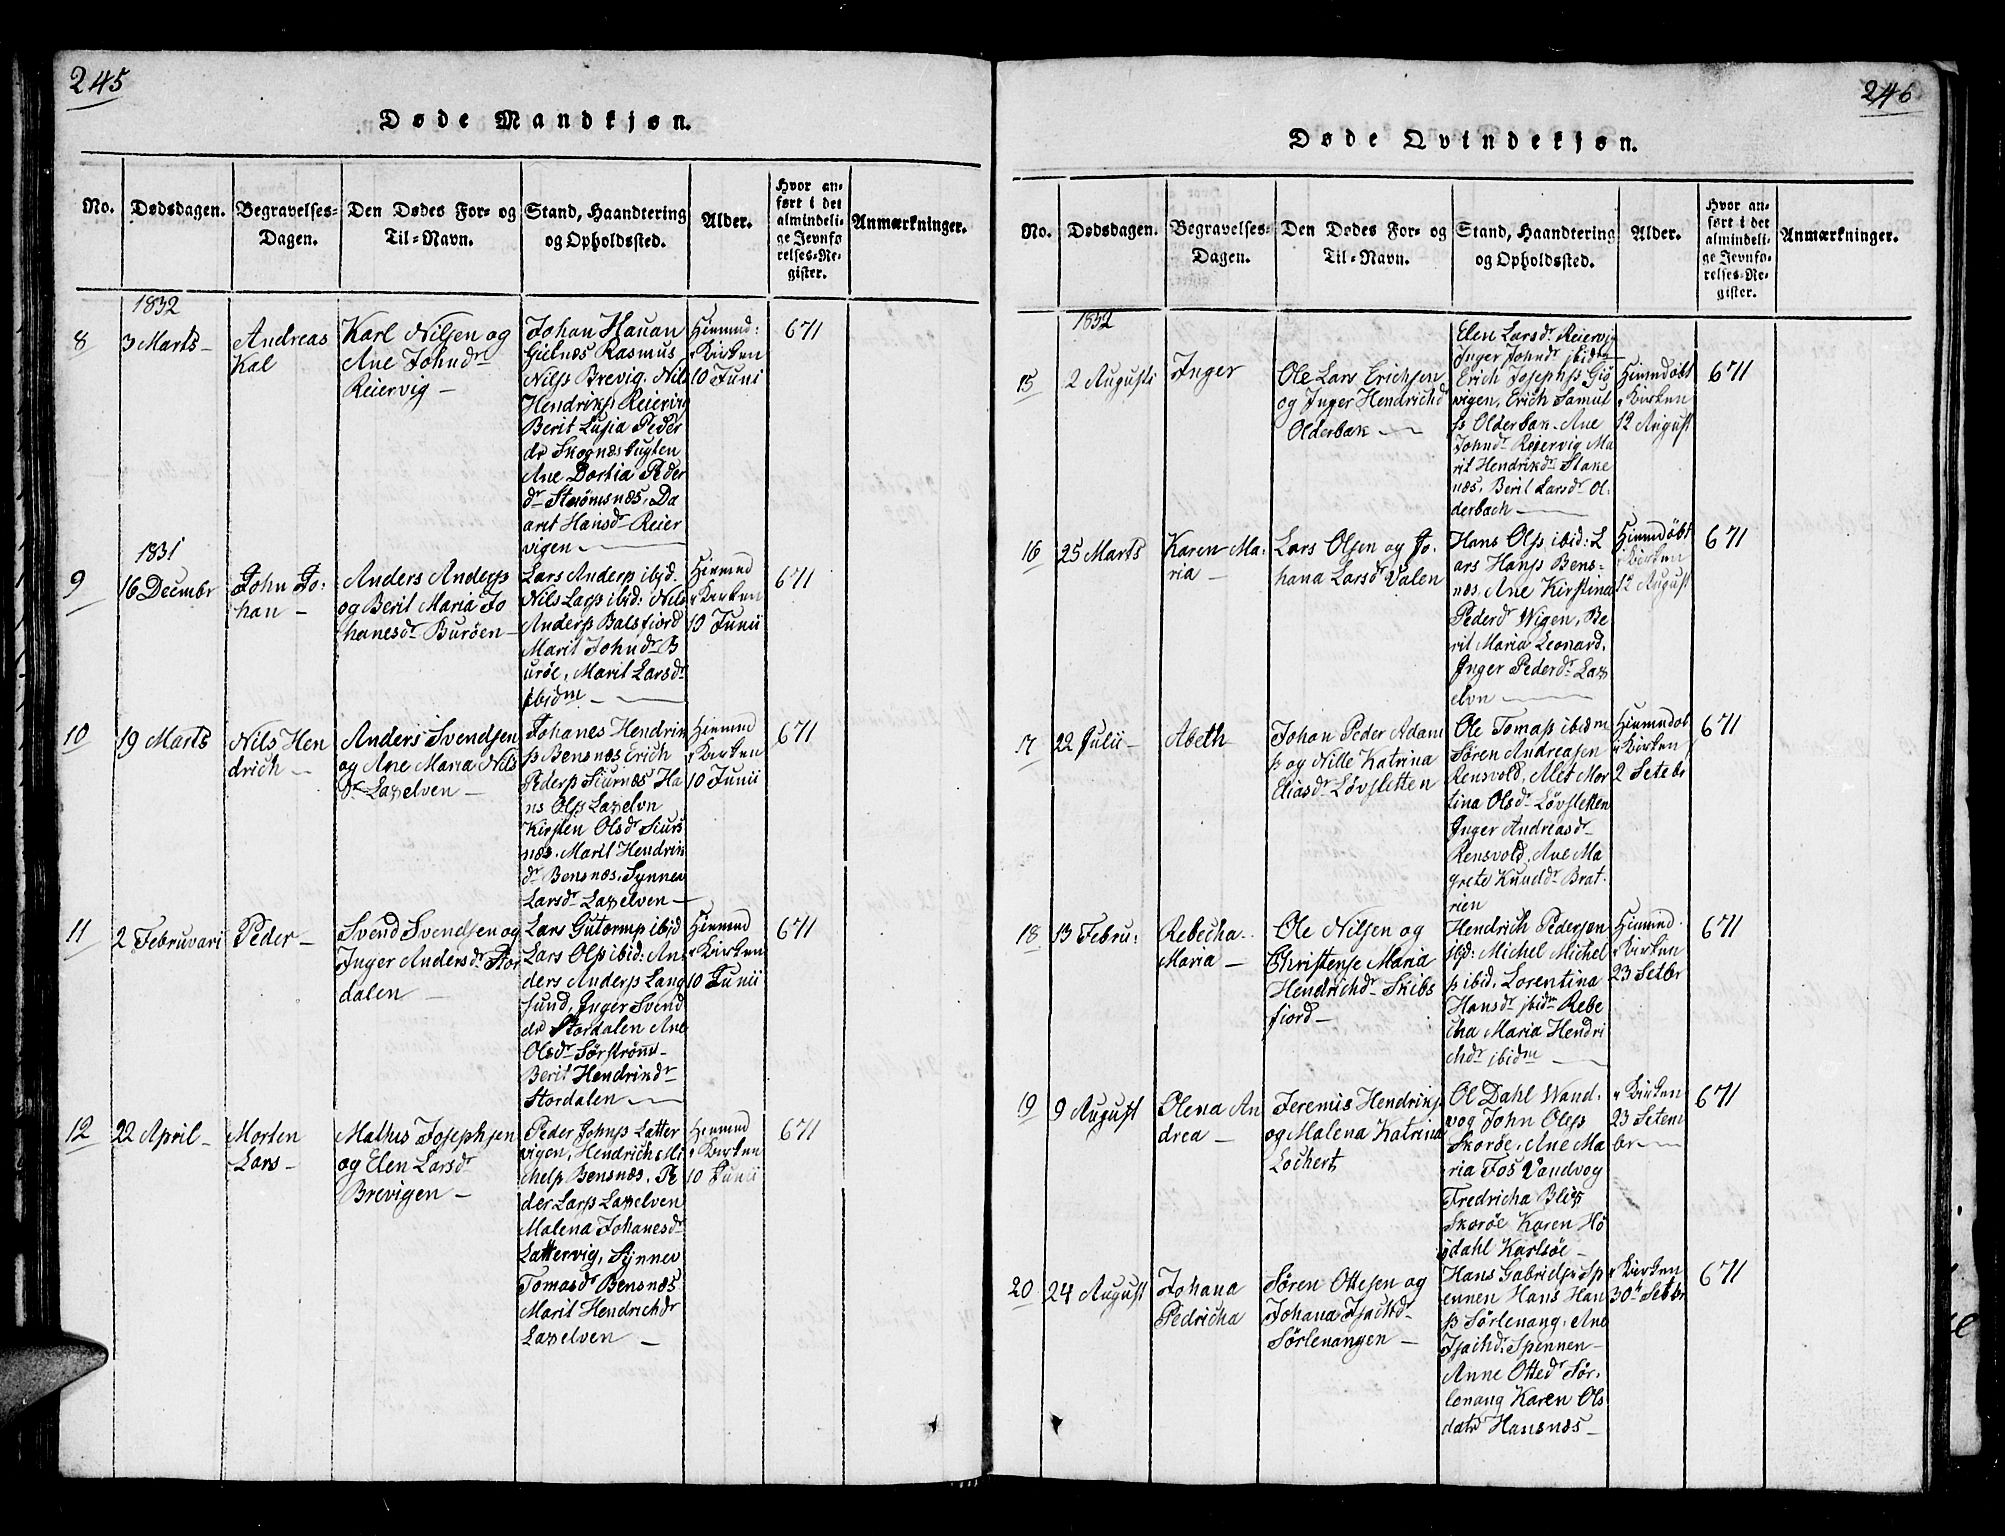 245
Døde Mandkjøn.
No.
Dødsdagen.
Begravelses-
Dagen.
Den Dødes For- og
Til-Navn.
Stand, Haandtering
og Opholdssted.
Alder.
Hvor an-
ført i det
almindeli-
ge Jevnfø
relses-Re-
gister.
Anmærkninger.
1832
8
3 Marts -
Andreas
Kal
Karl Nilsen og
Ane Johndr
Reiervig -
Johan Hauan
Gielnæs Rasmus
Nilss Brevig. Nils
Hendrikss Reiervig
Berit Lusia Peder
dr Skognæsbugten
Ane Dortia Peder
dr Strømsnæs, Da
aret Hansdr Reier
vigen -
Hiemmd:
i Kirken
10 Juni
671
1831
9
16 Decmbr
John Jo-
han -
Anders Anderss
og Berit Maria Jo
hanesdr Burøen -
Lars Anderss ibid.
Nils Larss ibid: Nils
Anderss Balsfiord
Marit Johndr B
urøe, Marit Larsdr
ibidm -
Hiemmd
i Kirken
10 Junii
671
10
19 Marts
Nils Hen
drich -
Anders Svendsen
og Ane Maria Nils
dr Laxelven -
Johanes Hendrik
ss Bensnæs Erich
Pederss Siursnæs Ha
ns Olss Laxelvn
Kirsten Olsdr Siurs
næs. Marit Hendrik
dr Bensnæs, Synnev
Larsdr Laxelven -
Hiemmd
i Kirken
10 Junii
671
11
2 Februvari
Peder -
Svend Svendsen og
Inger Andersdr Stor
dalen -
Lars Gutormss ibid
Lars Olss ibid: An
ders Anderss Lang
sund, Inger Svend
dr Stordalen Ane
Olsdr Sørstrømm
Berit Hendrikdr
Stordalen -
Hiemmd
i Kirken
10 Junii
671
12
22 April -
Morten
Lars -
Mathis Josephsen
og Elen Larsdr
Brevigen -
Peder Johnss Latter
vigen, Hendrich Mi
chelss Bensnæs, Pe
der Larss Laxelven
Malena Johanesdr
Lattervig, Synnev
Tomasdr Bensnæs
Marit Hendrichdr
Laxelven -
Hiemmd
i Kirken
10 Junii
671
246
Døde Qvindekjøn.
No.
Dødsdagen.
Begravelses-
Dagen.
Den Dødes For- og
Til-Navn.
Stand, Haandtering
og Opholdssted.
Alder.
Hvor an-
ført i det
almindeli-
ge Jevnfø-
relses-Re-
gister.
Anmærkninger.
1832
15
2 Augusti
Inger
Ole Lars Erichsen
og Inger Hendrichd
Olderbak -
Elen Larsdr Reiervig
Inger Johndr ibidm
Erich Josephss Giø
vigen, Erich Samul
ss Olderbak. Ane
Johndr Reiervig Ma
rit Hendrikdr Stake
næs, Berit Larsdr Ol-
derbach -
Hiemmdøbt
i Kirken
12 August
671
16
25 Marts
Karen Ma-
ria -
Lars Olsen og Jo-
hana Larsdr Valen
Hans Olss ibid: L
ars Hanss Bens-
næs. Ane Kirstina
Pederd Wigen, Be
rit Maria Leonard.
Inger Pederdr Lax
elvn -
Hiemmdøbt
i Kirken
12 August
671
17
22 Julii -
Abeth
Johan Peder Adam
ss og Nille Katrina
Eliasdr Løvsletten
Ole Tomass ibidm
Søren Andreasen
Rensvold, Alet Mor
tina Olsdr Løvsletten
Inger Andreasdr
Rensvold, Ane Ma
grete Knuddr Brat-
rien
Hiemmdøb
i Kirken
2 Setebr
671
18
13 Febru:
Rebecha
Maria -
Ole Nilsen og
Christense Maria
Hendrichdr Skibs
fiord -
Hendrich Pedersen
ibid: Michel Michel
ss ibid, Lorentina
Hansdr ibidm Rebe
cha Maria Hendri
chdr ibidm -
Hiemmd.
i Kirken
23 Setbr
671
19
9 August
Olena An
drea -
Jeremis Hendrikss
og Malena Katrina
Lochert
Ol Dahl Wand-
vog John Olss
Skorøe, Ane Ma
ria Fos Vandvog
Fredricha Blix
Skorøe Karen Hö
gdahl Karlsøe -
i Kirken
23 Setem
br -
671
20
24 August
Johana
Pedricha
Søren Ottesen og
Johana Isachdr
Sørlenangen -
Hans Gabrielss Sp
ennen Hans Han
ss Sørlenang. Ane
Isachd. Spennen -
Anne Ottedr Sør-
lenang Karen Ols
datr Hansnæs -
i Kirken
30 Setbr
671